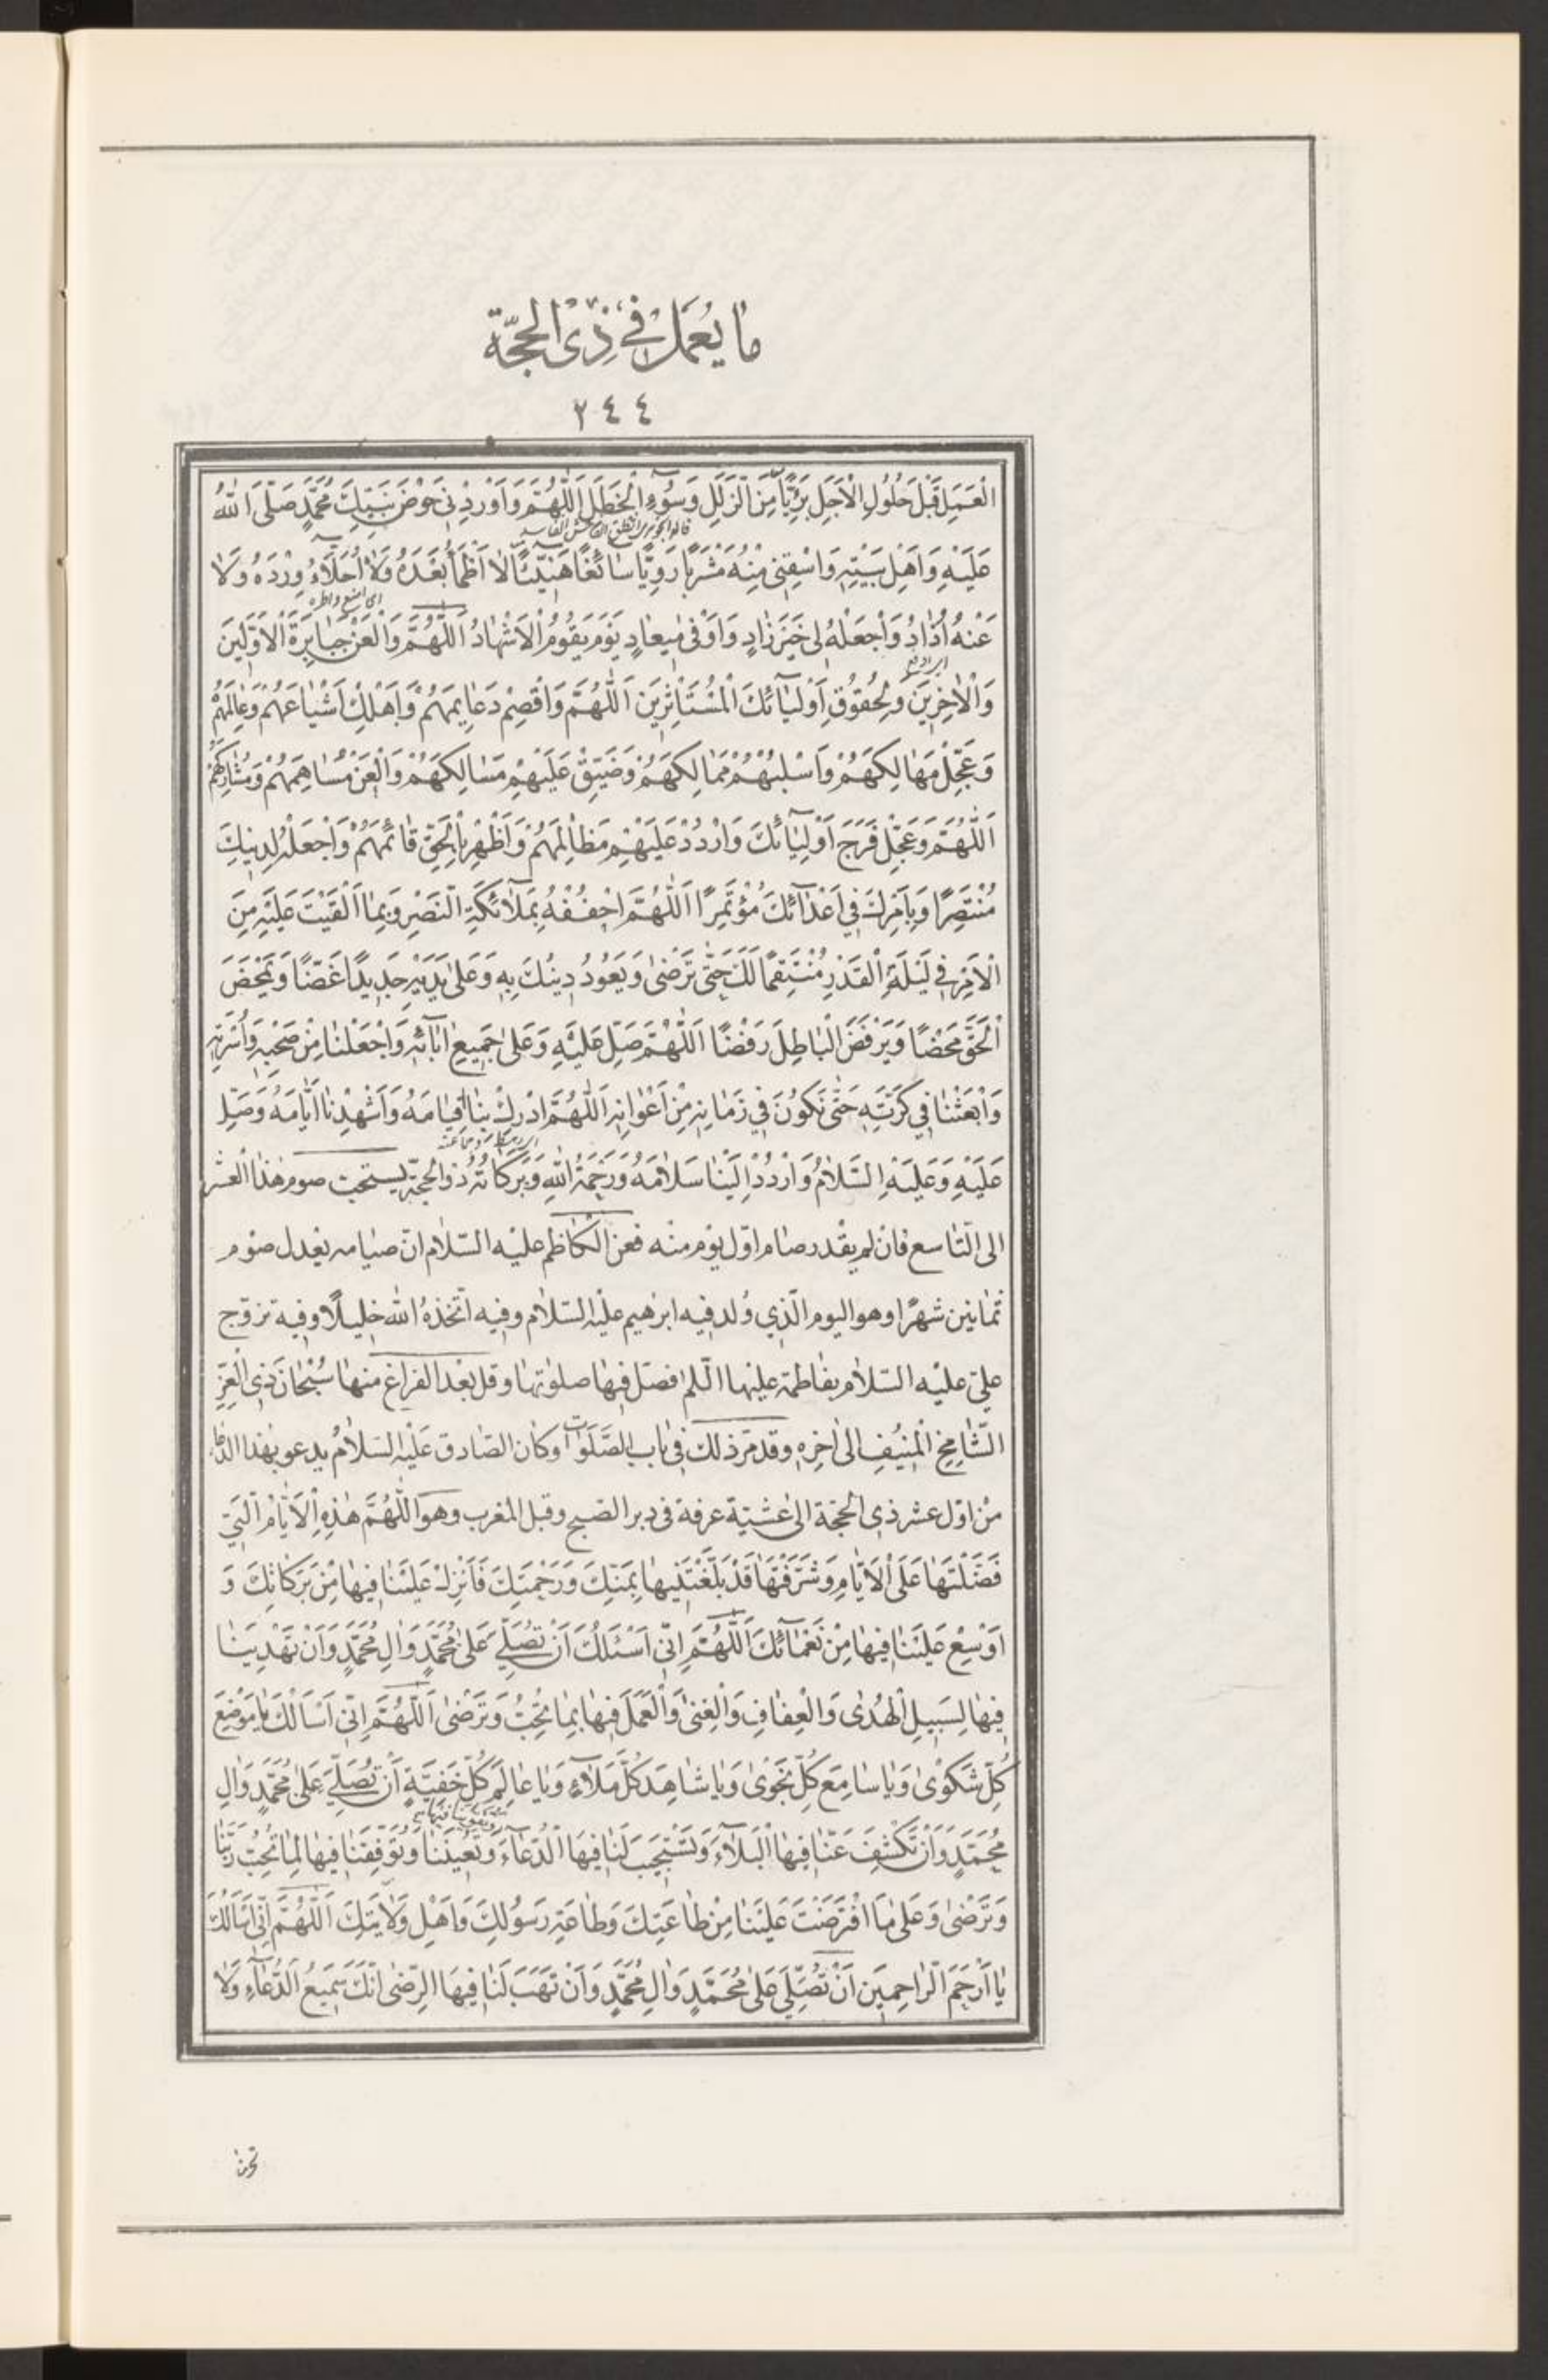 مٰا يُعْمَلُ فِي ذِى الْحِجَّةِ
٢٤٤
الْعَمَلِ قَبْلَ حُلُولِ الْاَجَلِ بَرِيًّا مِنَ الزَّلَلِ وَسُوٓءِ الْخَطَلِ اَللّٰهُمَّ وَاَوْرِدْنِى حَوْضَ نَبِيِّكَ مُحَمَّدٍ صَلَّى اللّٰهُ
عَلَيْهِ وَاَهْلِ بَيْتِهِ وَاسْقِنِى مِنْهُ مَشْرَبًا رَوِيًّا سٰائِغًا هَنِيٓئًا لٰا اَظْمَأُ بَعْدَهُ وَلٰا اُحَلَّاُ وِرْدَهُ وَلٰا
عَنْهُ اُذٰادُ وَاجْعَلْهُ لِى خَيْرَ زٰادٍ وَاَوْفىٰ مِيعٰادٍ يَوْمَ يَقُومُ الْاَشْهٰادُ اَللّٰهُمَّ وَالْعَنْ جَبٰابِرَةَ الْاَوَّلِينَ
وَالْاٰخِرِينَ وَلِحُقُوقِ اَوْلِيٰآئِكَ الْمُسْتَأْثِرِينَ اَللّٰهُمَّ وَاقْصِمْ دَعٰايِمَهُمْ وَاَهْلِكْ اَشْيٰاعَهُمْ وَعٰامِلَهُمْ
وَعَجِّلْ مَهٰالِكَهُمْ وَاسْلُبْهُمْ مَمٰالِكَهُمْ وَضَيِّقْ عَلَيْهِمْ مَسٰالِكَهُمْ وَالْعَنْ مُسٰاهِمَهُمْ وَمُشٰارِكَهُمْ
اَللّٰهُمَّ وَعَجِّلْ فَرَجَ اَوْلِيٰآئِكَ وَارْدُدْ عَلَيْهِمْ مَظٰالِمَهُمْ وَاَظْهِرْ بِالْحَقِّ قٰائِمَهُمْ وَاجْعَلْهُ لِدِينِكَ
مُنْتَصِرًا وَبِاَمْرِكَ فِى اَعْدٰآئِكَ مُؤْتَمِرًا اَللّٰهُمَّ احْفُفْهُ بِمَلٰآئِكَةِ النَّصْرِ وَبِمٰا اَلْقَيْتَ عَلَيْهِ مِنَ
الْاَمْرِ فِى لَيْلَةِ الْقَدْرِ مُنْتَقِمًا لَكَ حَتّٰى تَرْضىٰ وَيَعُودُ دِينُكَ بِهِ وَعَلىٰ يَدَيْهِ جَدِيدًا غَضًّا وَيَمْحَضَ
الْحَقَّ مَحْضًا وَيَرْفَضَ الْبٰاطِلَ رَفْضًا اَللّٰهُمَّ صَلِّ عَلَيْهِ وَعَلىٰ جَمِيعِ اٰبٰآئِهِ وَاجْعَلْنٰا مِنْ صَحْبِهِ وَاُسْرَتِهِ
وَابْعَثْنٰا فِى كَرَّتِهِ حَتّٰى نَكُونَ فِى زَمٰانِهِ مِنْ اَعْوٰانِهِ اَللّٰهُمَّ ادْرِكْ بِنٰا قِيٰامَهُ وَاَشْهِدْنٰا اَيّٰامَهُ وَصَلِّ
عَلَيْهِ وَعَلَيْهِ السَّلٰامُ وَارْدُدْ اِلَيْنٰا سَلٰامَهُ وَرَحْمَةُ اللّٰهِ وَبَرَكٰاتُهُ ذو الحجّة يستحبّ صوم هٰذا العشر
الى التّاسع فان لم يقدر صام اوّل يوم منه فعن الكاظم عليه السّلام انّ صيامه يعدل صوم
ثمانين شهرًا وهو اليوم الّذي وُلد فيه ابرهيم عليه السّلام وفيه اتّخذهُ الله خليلًا وفيه تزوّج
علىّ عليه السّلام بفاطمة عليها السّلم فصلّ فيها صلوٰتها وقل بعد الفراغ منها سُبْحٰانَ ذِى الْعِزِّ
الشّٰامِخِ الْمُنِيفِ الى اخِرِهِ وقد مرّ ذلك فى باب الصَّلَوات وكان الصّادق عَلَيْهِ السّلامُ يدعو بهٰذا الدعاء
من اوّل عشر ذى الحجّة الى عشيّة عرفة فى دبر الصّبح وقبل المغرب وهو اَللّٰهُمَّ هٰذِهِ الْاَيّٰامُ الَّتِى
فَضَّلْتَهٰا عَلَى الْاَيّٰامِ وَشَرَّفْتَهٰا قَدْ بَلَّغْتَنِيهٰا بِمَنِّكَ وَرَحْمَتِكَ فَاَنْزِلْ عَلَيْنٰا فِيهٰا مِنْ بَرَكٰاتِكَ وَ
اَوْسِعْ عَلَيْنٰا فِيهٰا مِنْ نَعْمٰآئِكَ اَللّٰهُمَّ اِنِّى اَسْئَلُكَ اَنْ تُصَلِّىَ عَلىٰ مُحَمَّدٍ وَاٰلِ مُحَمَّدٍ وَاَنْ تَهْدِيَنٰا
فِيهٰا لِسَبِيلِ الْهُدىٰ وَالْعِفٰافِ وَالْغِنىٰ وَالْعَمَلَ فِيهٰا بِمٰا تُحِبُّ وَتَرْضىٰ اَللّٰهُمَّ اِنِّى اَسْاَلُكَ يٰا مَوْضِعَ
كُلِّ شَكْوىٰ وَيٰا سٰامِعَ كُلِّ نَجْوىٰ وَيٰا شٰاهِدَ كُلِّ مَلَآءٍ وَيٰا عٰالِمَ كُلِّ خَفِيَّةٍ اَنْ تُصَلِّىَ عَلىٰ مُحَمَّدٍ وَاٰلِ
مُحَمَّدٍ وَاَنْ تَكْشِفَ عَنّٰا فِيهَا الْبَلَآءَ وَتَسْتَجِيبَ لَنٰا فِيهَا الدُّعٰآءَ وَتُعِينَنٰا وَتُوَفِّقَنٰا فِيهٰا لِمٰا تُحِبُّ رَبَّنٰا
وَتَرْضىٰ وَعَلىٰ مَا افْتَرَضْتَ عَلَيْنٰا مِنْ طٰاعَتِكَ وَطٰاعَةِ رَسُولِكَ وَاَهْلِ وَلٰايَتِكَ اَللّٰهُمَّ اِنِّى اَسْاَلُكَ
يٰا اَرْحَمَ الرّٰاحِمِينَ اَنْ تُصَلِّىَ عَلىٰ مُحَمَّدٍ وَاٰلِ مُحَمَّدٍ وَاَنْ تَهَبَ لَنٰا فِيهَا الرِّضىٰ اِنَّكَ سَمِيعُ الدُّعٰآءِ وَلٰا
تحرمنا